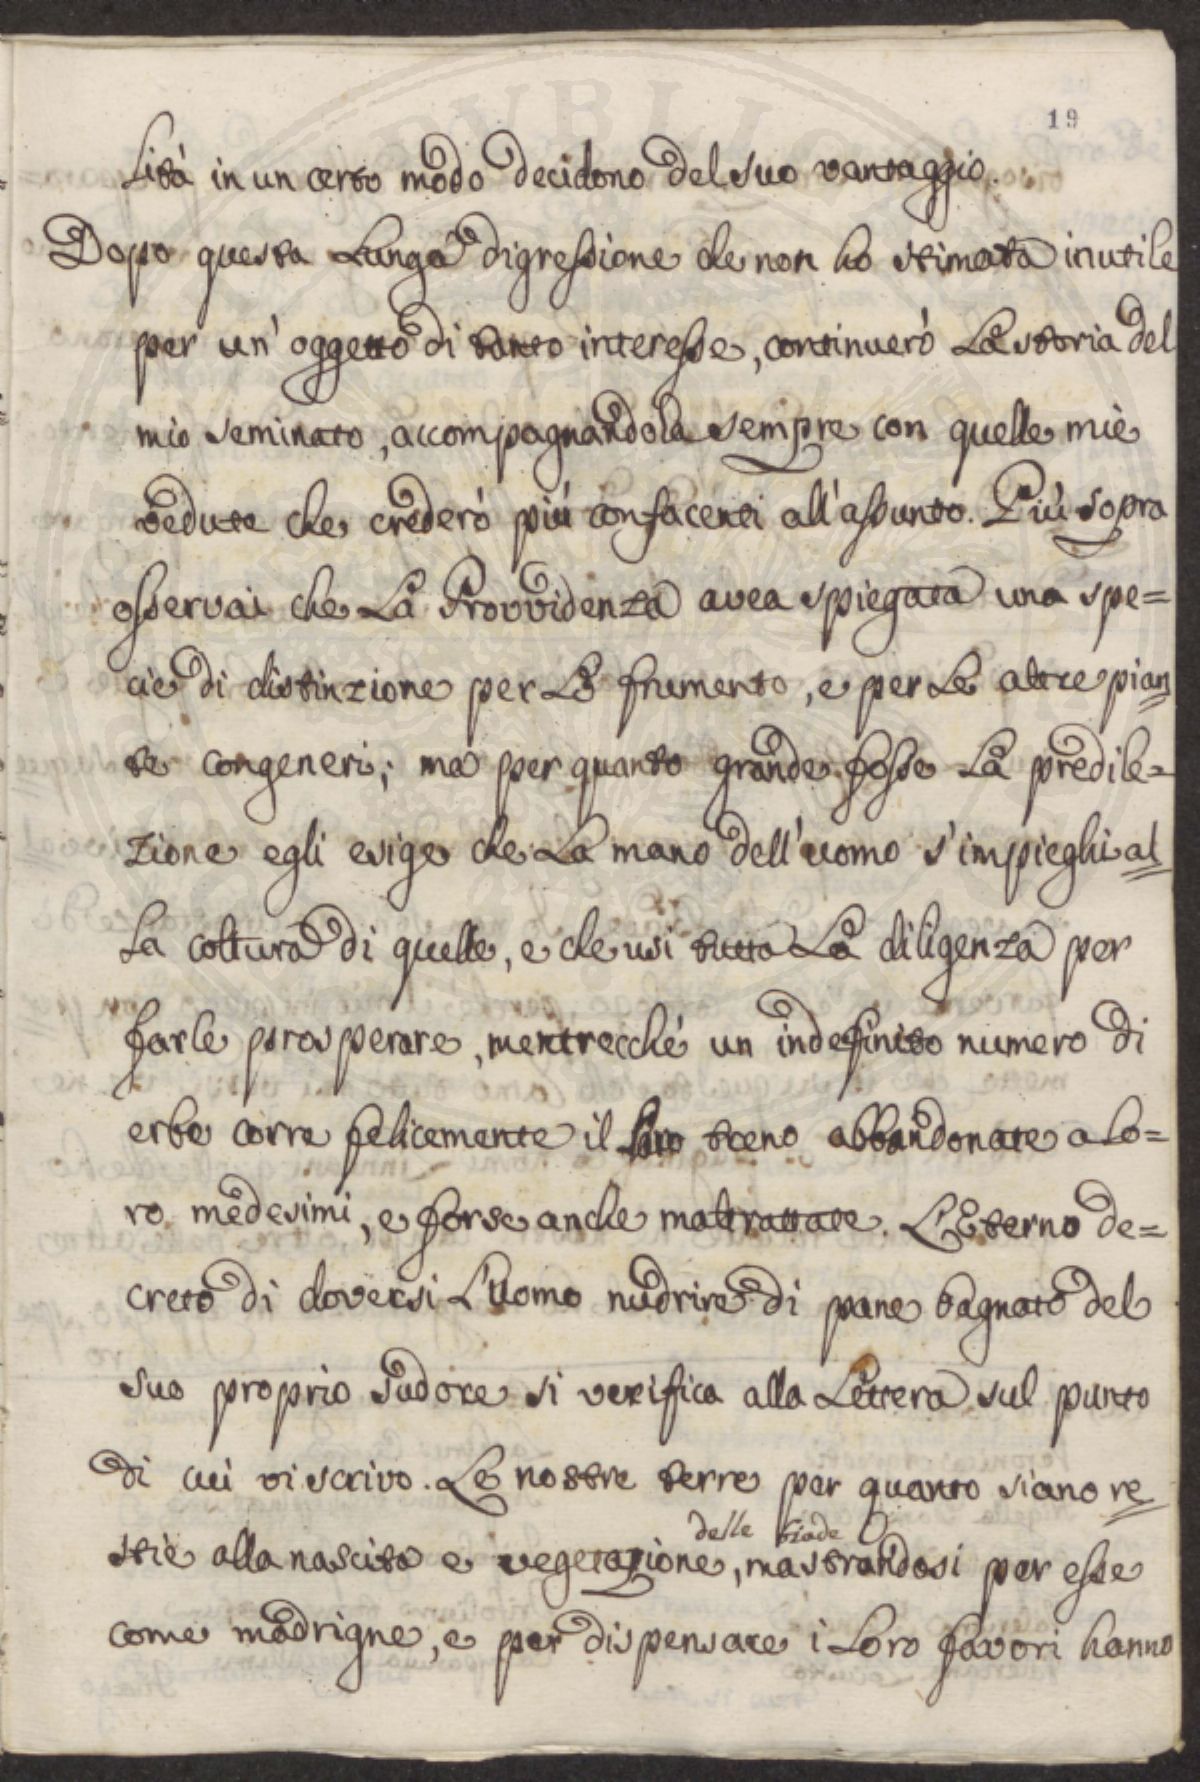 19
lità in un certo modo decidono del suo vantaggio.
Dopo questa lunga digressione che non ho stimata inutile
per un' oggetto di tanto interesse, continuerò la storia del
mio seminato, accompagnandola sempre con quelle mie
vedute che crederò più confacenti all'assunto. Più sopra
osservai che la Provvidenza avea spiegata una spe=
cie di distinzione per le frumento, e per le altre pian=
te congeneri; ma per quanto grande fosse la predile=
zione egli esige che la mano dell'uomo s'impieghi al=
la coltura di quelle, e che usi tutta la diligenza per
farle prosperare, mentrecché un indefinito numero di
erbe corre felicemente il loro steno abbandonate a lo=
ro medesimi, e forse anche maltrattate. L'Eterno de=
creto di doversi l'Uomo nudrire di pane bagnato del
suo proprio sudore si verifica alla lettera sul punto
di cui vi scrivo. Le nostre terre per quanto siano re=
delle biade
stie alla nascita e vegetazione, mostrandosi per esse
come madrigne, e per dispensare i loro favori hanno